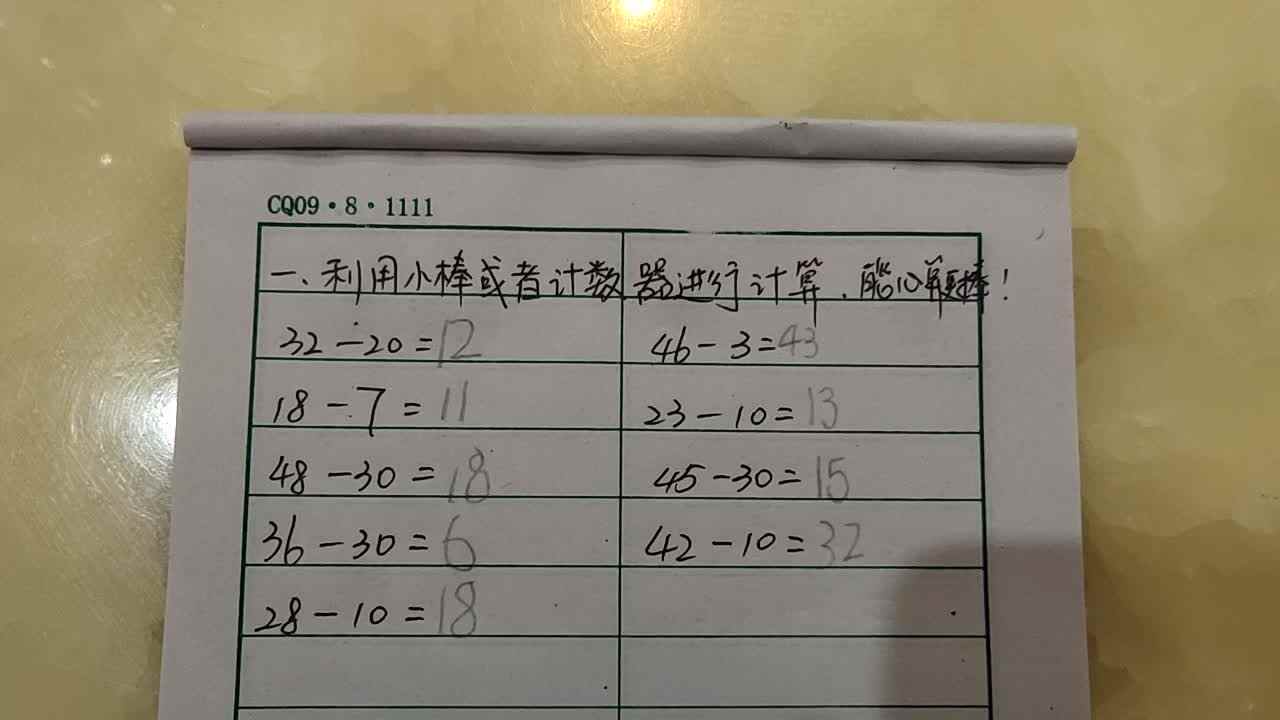 CQ09·8·1111
一、利用小棒或者计数器进行计算，能心算更棒！
32-20=12
46-3=43
18-7=11
23-10=13
48-30=18
45-30=15
36-30=6
42-10=32
28-10=18